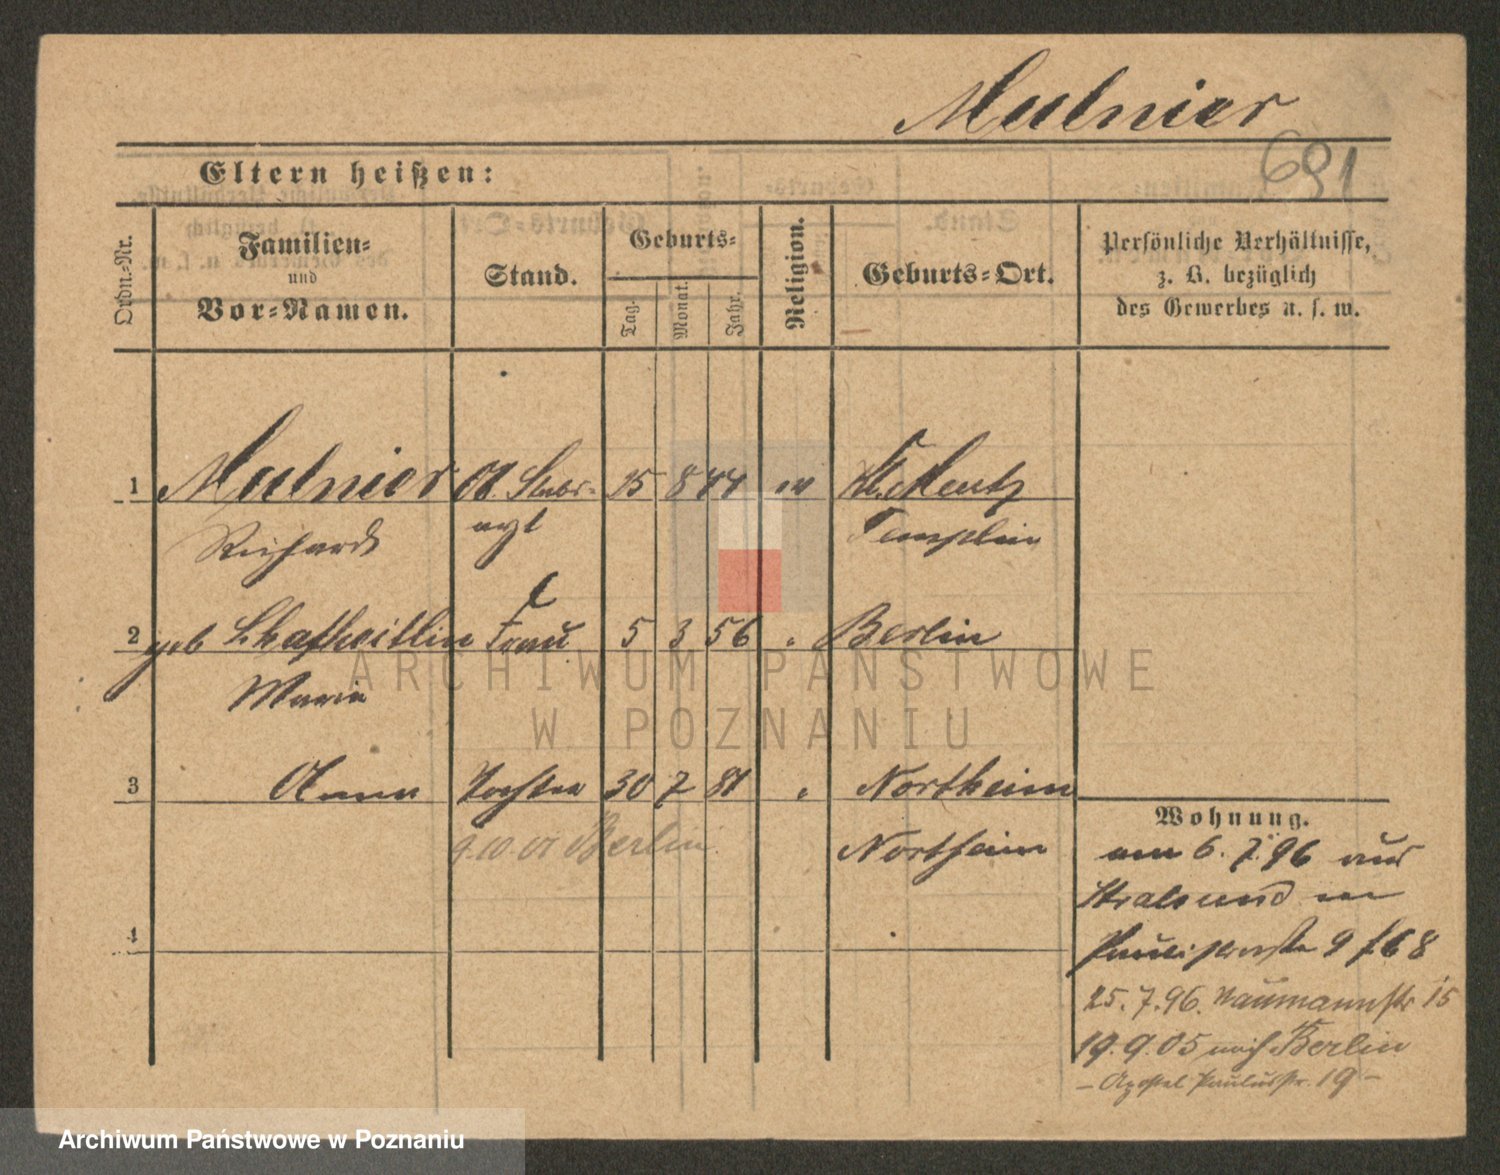 Mulnier
691
Eltern heißen:
Ordn.-Nr.
Familien-
und
Vor-Namen.
Stand.
Geburts-
Tag.
Monat.
Jahr.
Religion.
Geburts-Ort.
Persönliche Verhältnisse,
z. B. bezüglich
des Gewerbes u. s. w.
1 Mulnier Ob. Stabs- 15 8 44 ev Kl. Mutz
Richard arzt Templin
2 geb Frau 5 3 56 " Berlin
Marie
3 Anna Tochter 30 7 81 " Northeim
9.10.01 Berlin Northeim
4
Wohnung.
am 6. 7. 96 aus
Stralsund in
9 f. 68
25. 7. 96. Naumannstr 15
19. 9. 05 nach Berlin
- Apostel Paulusstr. 19 -
ARCHIWUM PAŃSTWOWE
W POZNANIU
Archiwum Państwowe w Poznaniu